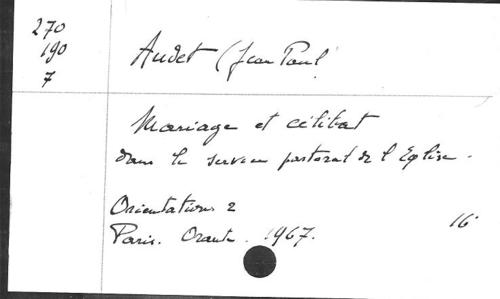 270
190
7
Audet (Jean Paul)
Mariage et célibat
dans le service pastoral de l'Eglise.
Orientations 2
Paris. Orante. 1967.
16°